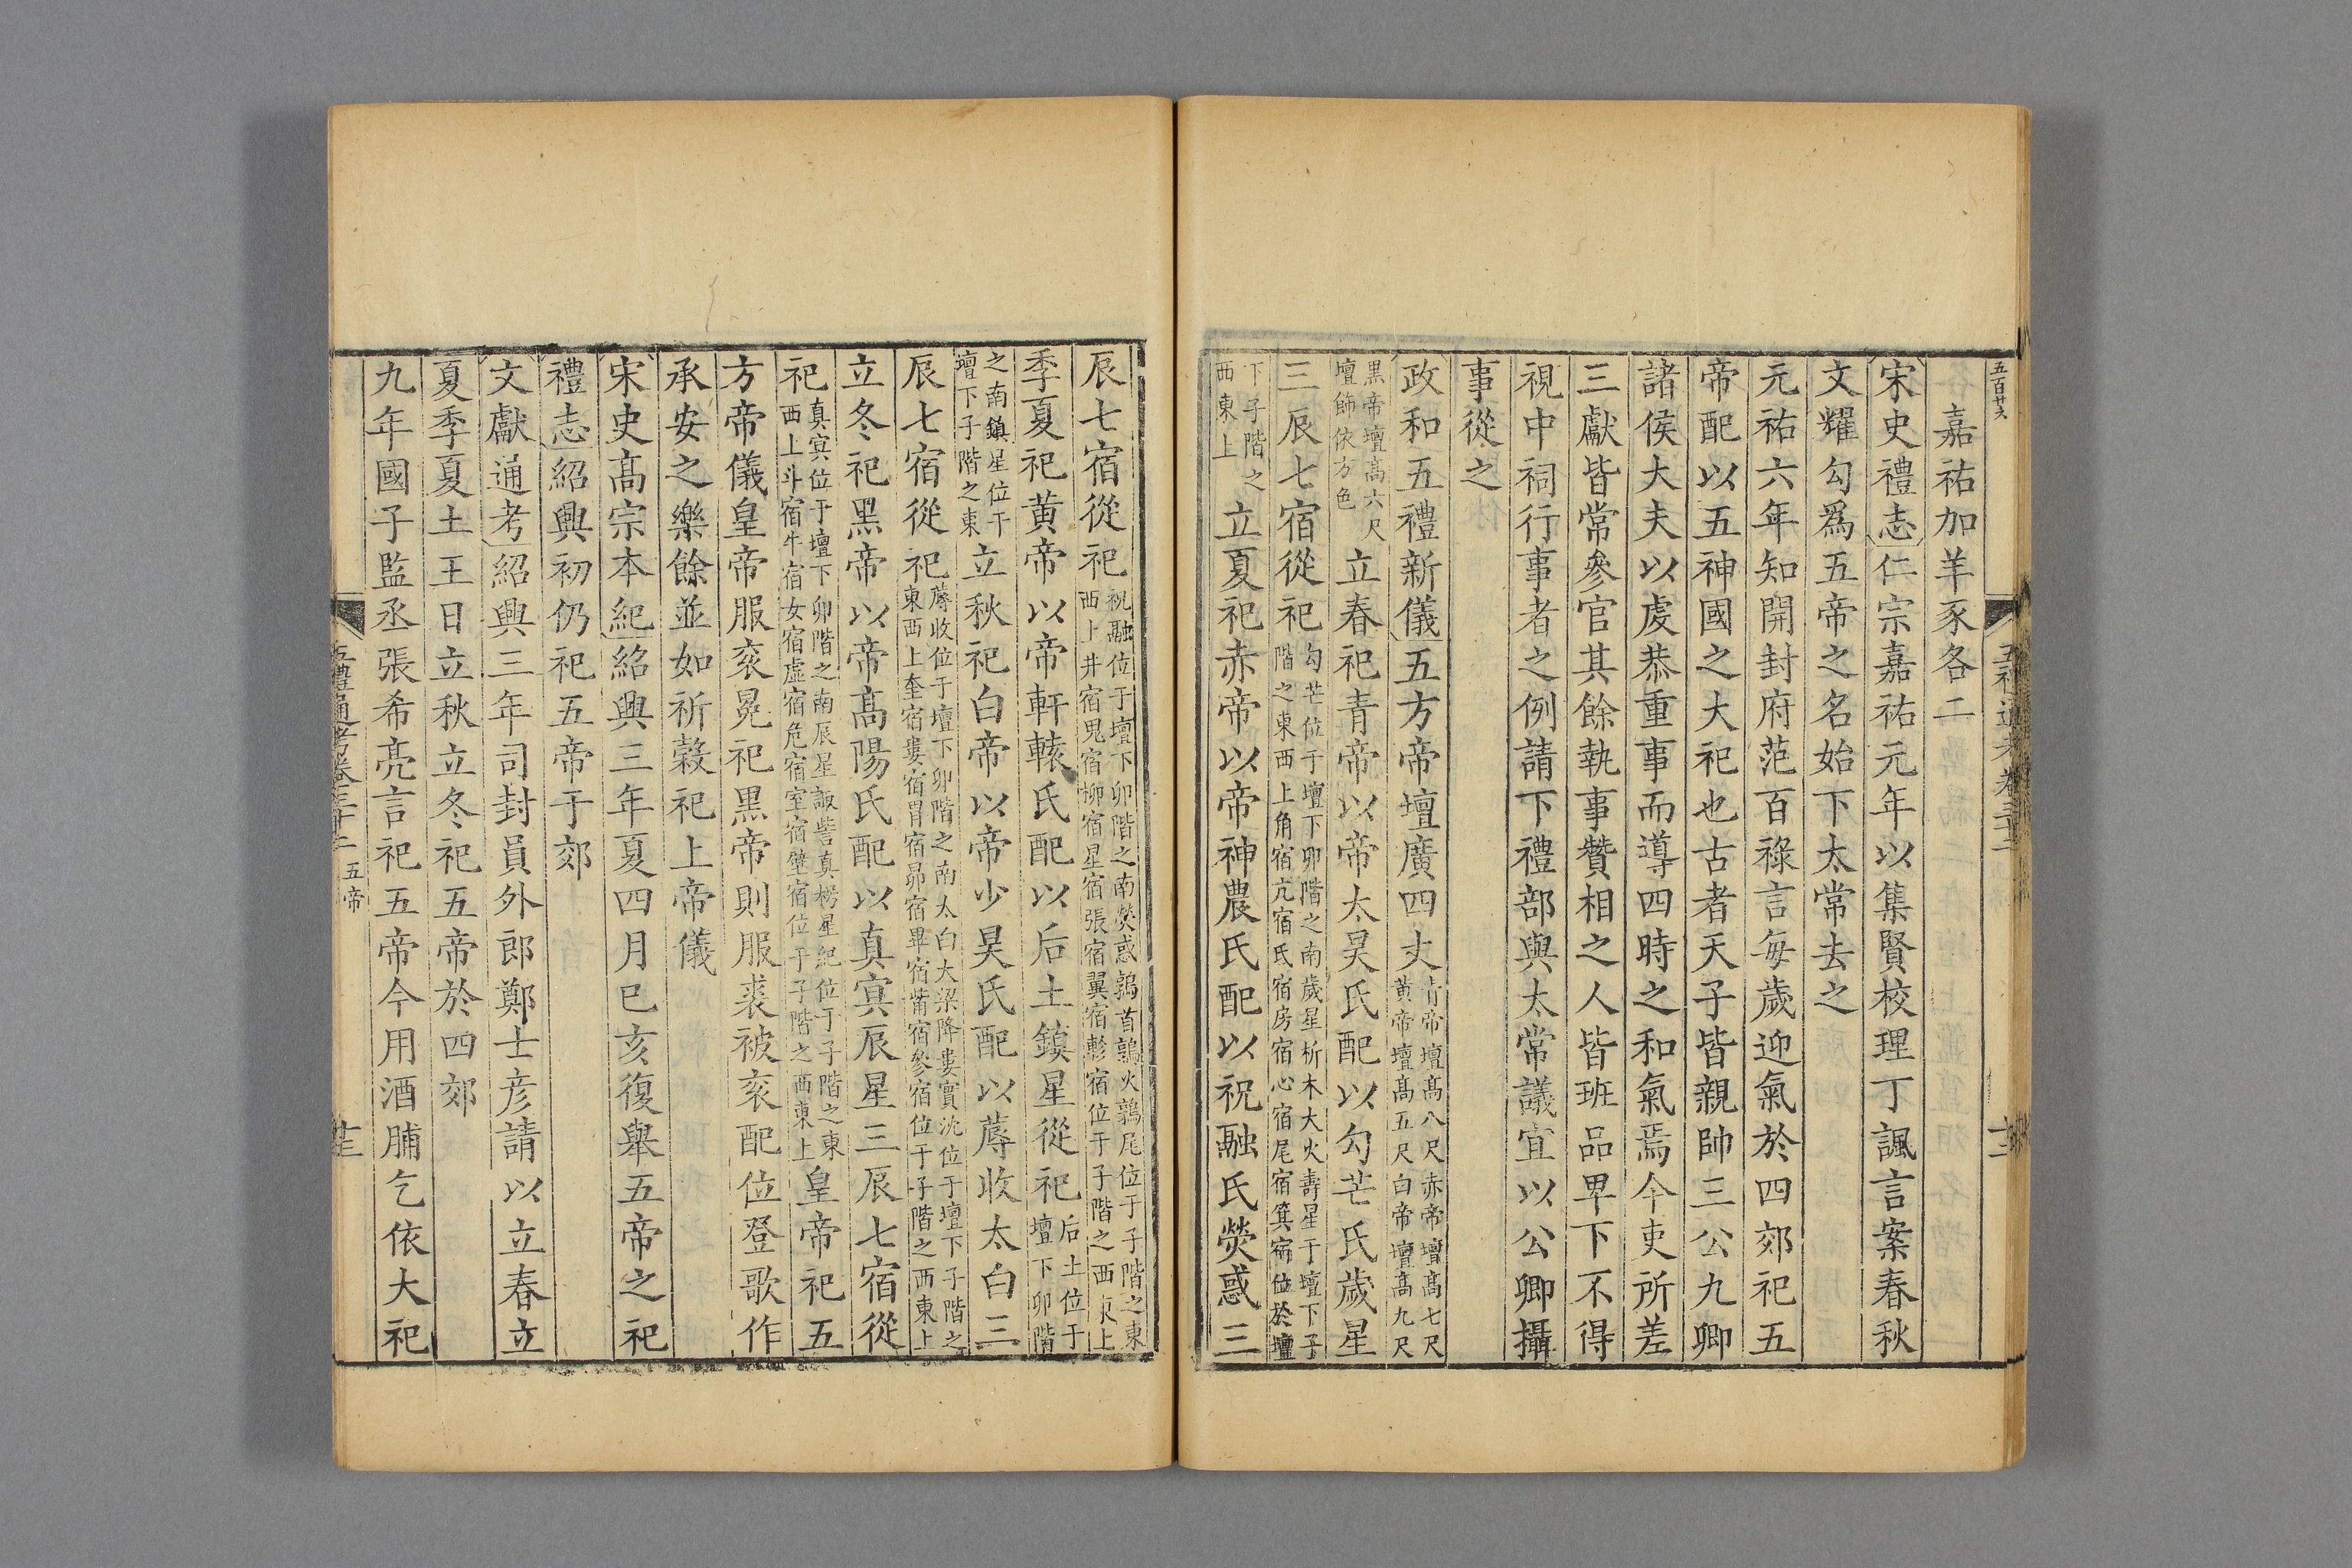 五百廿六
五禮通考卷三十二
十二
嘉祐加羊豕各二
宋史禮志仁宗嘉祐元年以集賢校理丁諷言案春秋
文耀勾爲五帝之名始下太常去之
元祐六年知開封府范百祿言每歲迎氣於四郊祀五
帝配以五神國之大祀也古者天子皆親帥三公九卿
諸侯大夫以虔恭重事而導四時之和氣焉今吏所差
三獻皆常參官其餘執事贊相之人皆班品卑下不得
視中祠行事者之例請下禮部與太常議宜以公卿攝
事從之
政和五禮新儀五方帝壇廣四丈青帝壇高八尺赤帝壇高七尺黃帝壇高五尺白帝壇高九尺
黑帝壇高六尺壇飾依方色立春祀青帝以帝太昊氏配以勾芒氏歲星
三辰七宿從祀勾芒位于壇下卯階之南歲星析木大火壽星于壇下子階之東西上角宿亢宿氐宿房宿心宿尾宿箕宿位於壇
下子階之西東上立夏祀赤帝以帝神農氏配以祝融氏熒惑三
辰七宿從祀祝融位于壇下卯階之南熒惑鶉首鶉火鶉尾位于子階之東西上井宿鬼宿柳宿星宿張宿翼宿軫宿位于子階之西東上
季夏祀黃帝以帝軒轅氏配以后土鎮星從祀后土位于壇下卯階
之南鎮星位于壇下子階之東立秋祀白帝以帝少昊氏配以蓐收太白三
辰七宿從祀蓐收位于壇下卯階之南太白大梁降婁實沈位于壇下子階之東西上奎宿婁宿胃宿昴宿畢宿觜宿參宿位于子階之西東上
立冬祀黑帝以帝高陽氏配以真㝠辰星三辰七宿從
祀真㝠位于壇下卯階之南辰星諏訾真枵星紀位于子階之東西上斗宿牛宿女宿虛宿危宿室宿壁宿位于子階之西東上皇帝祀五
方帝儀皇帝服衮冕祀黑帝則服裘被衮配位登歌作
承安之樂餘並如祈穀祀上帝儀
宋史高宗本紀紹興三年夏四月巳亥復舉五帝之祀
禮志紹興初仍祀五帝于郊
文獻通考紹興三年司封員外郎鄭士彥請以立春立
夏季夏土王日立秋立冬祀五帝於四郊
九年國子監丞張希亮言祀五帝今用酒脯乞依大祀
五禮通考卷三十二 五帝